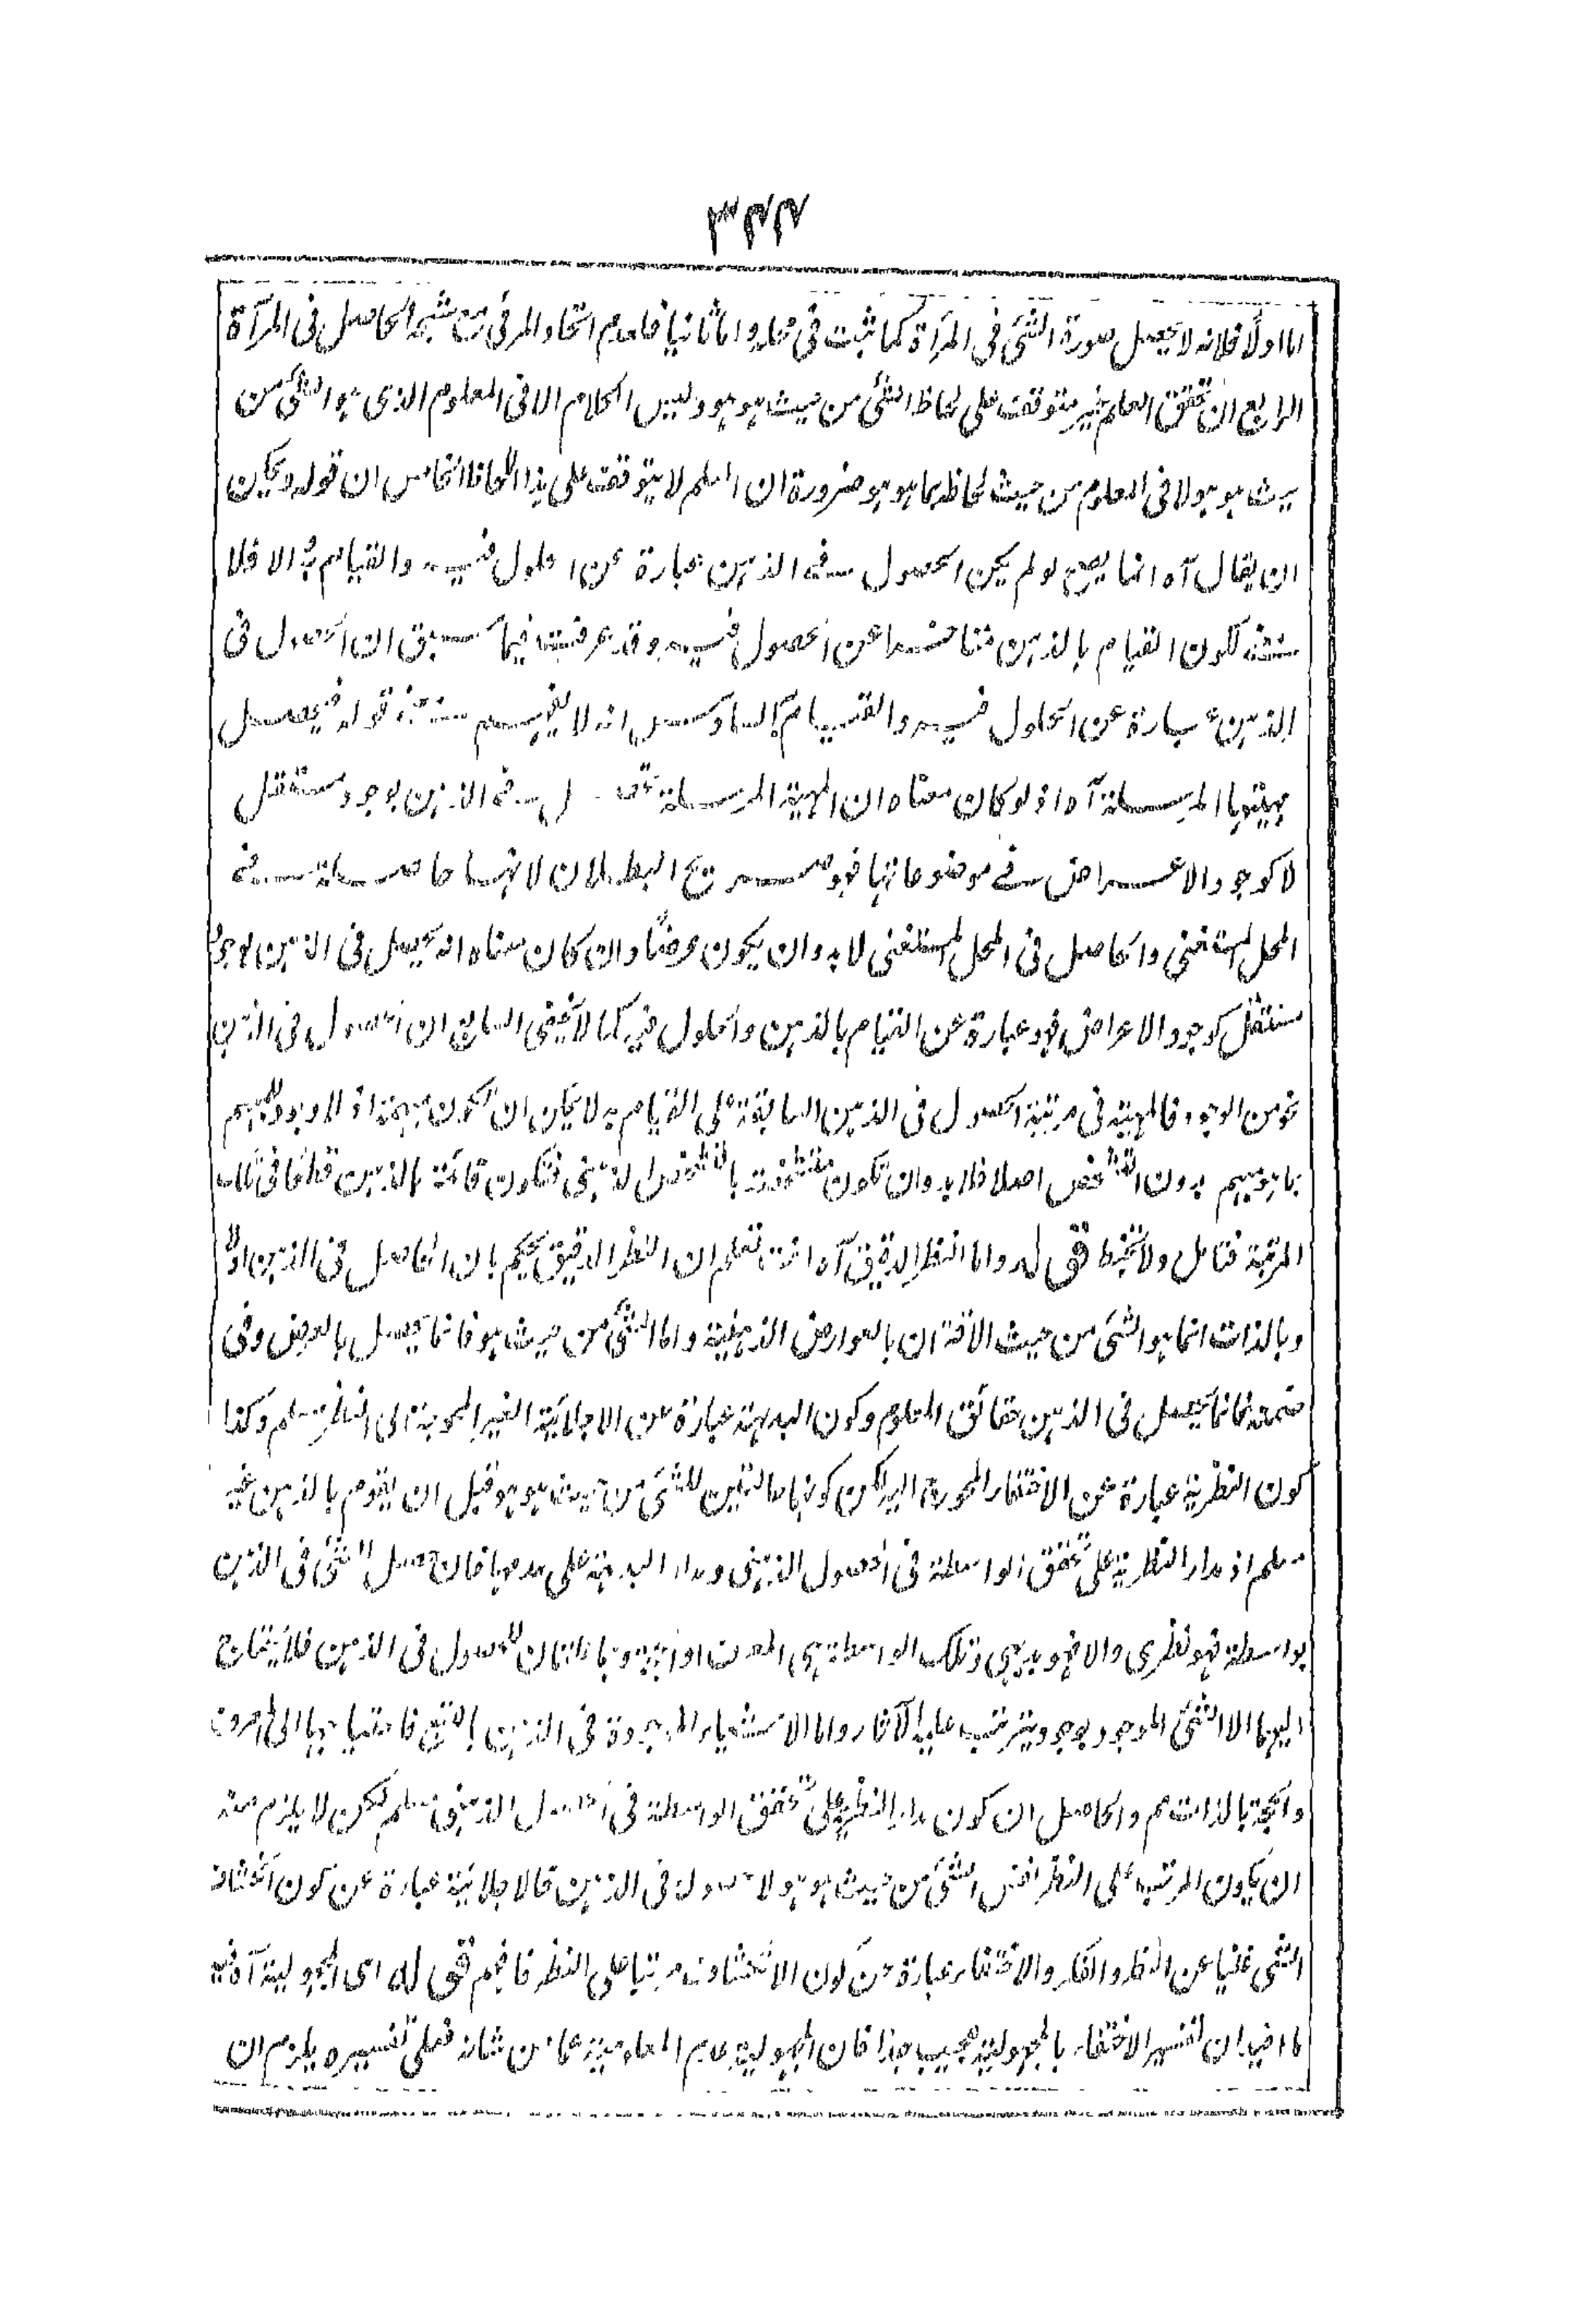 ٣٤٤
اما اولًا فلانه لا يحصل صورة الشئ فى المرآة كما ثبت فى محله واما ثانيا فلعدم اتحاد المرئى مع شبحه الحاصل فى المرآة
الرابع ان تحقق العلم غير متوقف على لحاظ الشئ من حيث هو هو وليس الكلام الا فى المعلوم الذى هو الشئ من
حيث هو هو لا فى المعلوم من حيث لحاظه بما هو هو ضرورة ان العلم لا يتوقف على هذا اللحاظ الخامس ان قوله ويمكن
ان يقال آه انما يصح لو لم يكن الحصول فى الذهن عبارة عن الحلول فيه والقيام به والا فلا
معنى لكون القيام بالذهن متاخرا عن الحصول فيه وقد عرفت فيما سبق ان الحصول فى
الذهن عبارة عن الحلول فيه والقيام به السادس انه لا يفهم معنى قوله فيحصل
مهيتها المرسلة آه اذ لو كان معناه ان المهية المرسلة تحصل فى الذهن بوجود مستقل
لا كوجود الاعراض فى موضوعاتها فهو صريح البطلان لانها حاصلة فى
المحل المستغنى والحاصل فى المحل المستغنى لا بد وان يكون عرضًا وان كان معناه انه يحصل فى الذهن بوجود
مستقل كوجود الاعراض فهو عبارة عن القيام بالذهن والحلول فيه كما لا يخفى السابع ان الحصول فى الذهن
نحو من الوجود فالمهية فى مرتبة الحصول فى الذهن السابقة على القيام به لا يمكن ان تكون مبهمة اذ لا وجود للمبهم
بما هو مبهم بدون التشخص اصلا فلا بد وان تكون متشخصة بالتشخص الذهنى فتكون قائمة بالذهن قطعًا فى تلك
المرتبة فتامل ولا تخبط قوله واما النظر الدقيق آه انت تعلم ان النظر الدقيق يحكم بان الحاصل فى الذهن اولًا
وبالذات انما هو الشئ من حيث الاقتران بالعوارض الذهنية واما الشئ من حيث هو فانما يحصل بالعرض وفى
ضمنه فانما يحصل فى الذهن حقائق المعلوم وكون البديهة عبارة عن الاجلائية الغير المحوجة الى النظر مسلم وكذا
كون النظرية عبارة عن الافتقار المحوج اليه لكن كونها صالتين للشئ من حيث هو هو قبل ان يقوم بالذهن غير
مسلم اذ مدار النظرية على تحقق الواسطة فى الحصول الذهنى ومدار البديهة على عدمها فان حصل الشئ فى الذهن
بواسطة فهو نظرى والا فهو بديهى وتلك الواسطة هى المعرف او الحجة وهما علتان للحصول فى الذهن فلا يحتاج
اليهما الا الشئ الموجود بوجود يترتب عليه الآثار واما الاشياء الموجودة فى الذهن بالتبع فاحتياجها الى المعرف
والحجة بالذات مم والحاصل ان كون مدار النظرية على تحقق الواسطة فى الحصول الذهنى مسلم لكن لا يلزم منه
ان يكون المرتب على النظر نفس الشئ من حيث هو هو لا حصوله فى الذهن فالاجلائية عبارة عن كون انكشاف
الشئ غنيا عن النظر والفكر والافتقار عبارة عن كون الانكشاف مرتبا على النظر فافهم قوله اى المجهولية آه فيه
ما افيد ان تفسير الافتقار بالمجهولية عجيب جدا فان المجهولية عدم المعلومية عما من شانه فعلى تفسيره يلزم ان